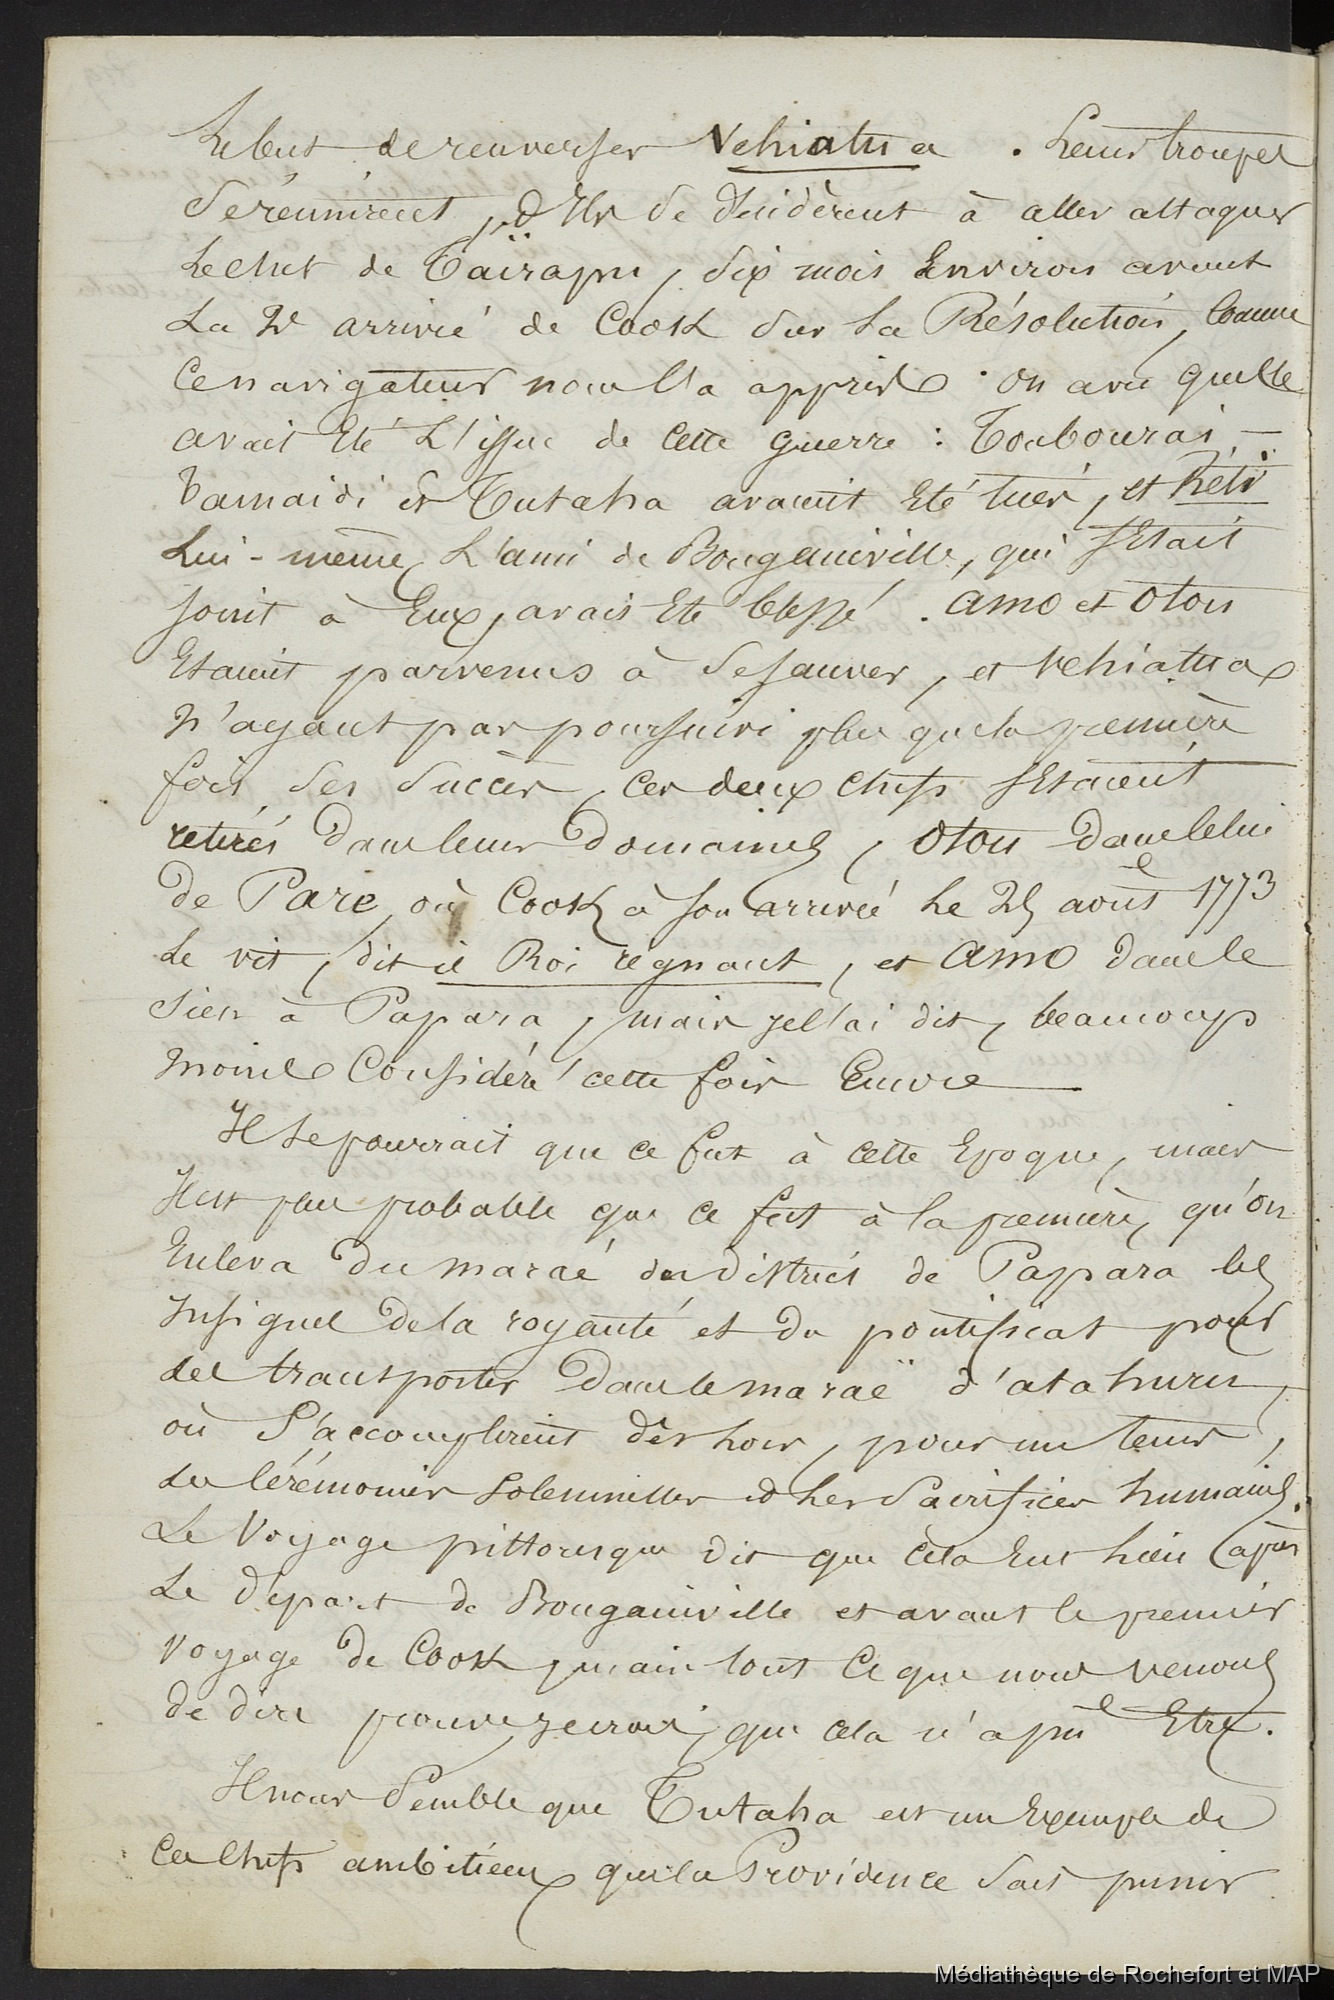 le but de renverser Vehiatua. Leurs troupes
se réunirent, & Ils se décidèrent à aller attaquer
le chef de Taïrapu, dix mois Environ avant
La 2e arrivée de Cook sur la Résolution, Comme
Ce navigateur nous l'a appris. on a vu quelle
avait Eté L'issue de cette guerre : Toubourai-
Tamaidi & Tutaha avaient Eté tués, et Réti
Lui-même, L'ami de Bougainville, qui s'Etait
joint à Eux, avait Eté blessé. Amo et Otou
Etaient parvenus à se sauver, et Vehiatua
n'ayant pas poursuivi plus que la première
fois ses succès, ces deux chefs s'Etaient
retirés dans leurs domaines, Otou dans celui
de Pare, où Cook à son arrivée le 25 août 1773
le vit, dit-il Roi régnant, et Amo dans le
sien à Papara, mais je l'ai dit, beaucoup
moins Considéré cette fois Encore —
Il se pourrait que ce fut à cette Epoque, mais
Il est plus probable que ce fut à la première, qu'on
Enleva du maraé du district de Papara les
Insignes de la royauté et du pontificat pour
les transporter dans le maraë d'atahuru,
où S'accomplirent dès lors, pour un tems,
les Cérémonies solennelles & les Sacrifices humains.
Le Voyage pittoresque dit que cela Eut lieu après
Le départ de Bougainville et avant le premier
Voyage de Cook, mais tout Ce que nous venons
de dire prouve, je crois, que cela n'a pu Etre.
Il nous Semble que Tutaha est un Exemple de
Ces Chefs ambitieux que la Providence sait punir
Médiathèque de Rochefort et MAP